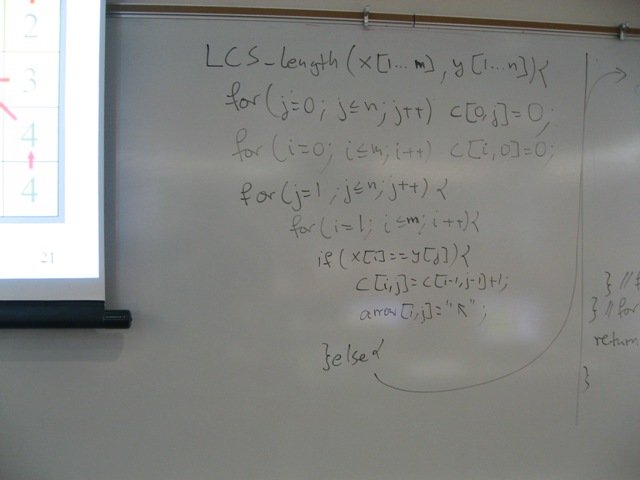 2
3
4
4
21
LCS_length(x[1...m], y[1...n]){
for(j=0; j≤n; j++) c[0,j]=0;
for(i=0; i≤m; i++) c[i,0]=0;
for(j=1; j≤n; j++){
for(i=1; i≤m; i++){
if(x[i]==y[j]){
c[i,j]=c[i-1,j-1]+1;
arrow[i,j]="↖";
}else{
} //
} //for
return
}